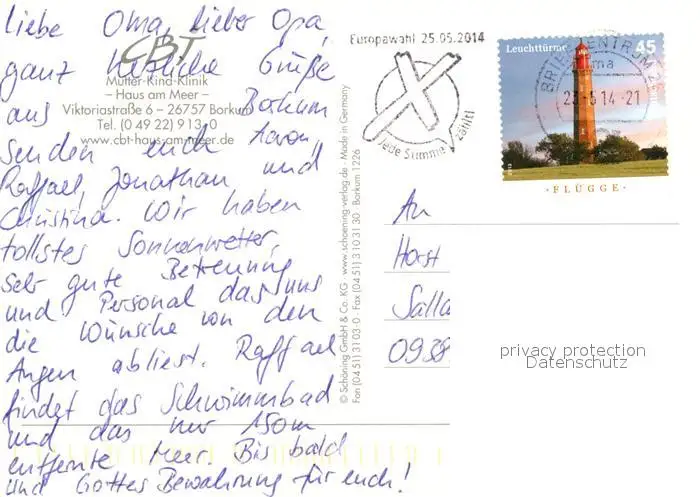 liebe Oma, lieber Opa,
ganz herzliche Grüße
aus Borkum
senden euch Aaron,
Raffael, Jonathan und
Christina. Wir haben
tollstes Sonnenwetter,
sehr gute Betreuung
und Personal das uns
die Wünsche von den
Augen abliest. Raffael
findet das Schwimmbad
und das nur 150m
entfernte Meer. Bis bald
und Gottes Bewahrung für euch!
CBT
Mutter-Kind-Klinik
– Haus am Meer –
Viktoriastraße 6 – 26757 Borkum
Tel. (0 49 22) 9 13-0
www.cbt-haus-am-meer.de
© Schöning GmbH & Co. KG · www.schoening-verlag.de · Made in Germany
Fon (04 51) 3 10 3-0 · Fax (04 51) 3 10 31 30 · Borkum 1226
Europawahl 25.05.2014
Jede Stimme zählt!
BRIEFZENTRUM
23.5.14-21
Leuchttürme 45
FLÜGGE
An
Horst
Salla
0938
privacy protection
Datenschutz